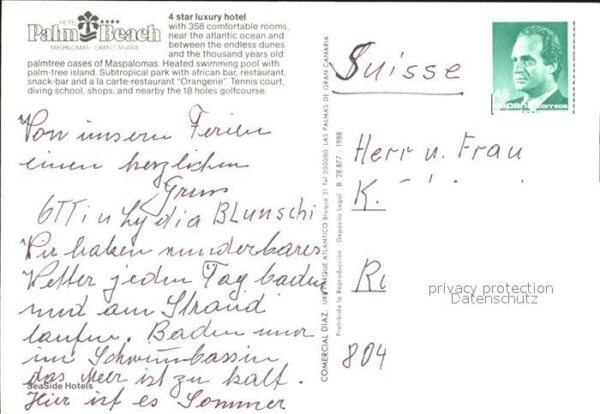 HOTEL ****
Palm Beach
MASPALOMAS · GRAN CANARIA
4 star luxury hotel
with 358 comfortable rooms,
near the atlantic ocean and
between the endless dunes
and the thousand years old
palmtree oases of Maspalomas. Heated swimming pool with
palm-tree island. Subtropical park with african bar, restaurant,
snack-bar and a la carte-restaurant "Orangerie" Tennis court,
diving school, shops, and nearby the 18 holes golfcourse.
Von unsern Ferien
einen herzlichen
Gruss
Otti u Lydia Blunschi
Wir haben wunderbares
Wetter jeden Tag baden
und am Strand
laufen. Baden nur
im Schwimmbassin
das Meer ist zu kalt.
Hier ist es Sommer
SeaSide Hotels
COMERCIAL DIAZ. URB. PARQUE ATLANTICO Bloque 31 Tel 200880. LAS PALMAS DE GRAN CANARIA
Prohibida la Reproducción Depósito Legal B 28.877 - 1988
Suisse
45
España correos
Herr u. Frau
K.
Ri
804
privacy protection
Datenschutz